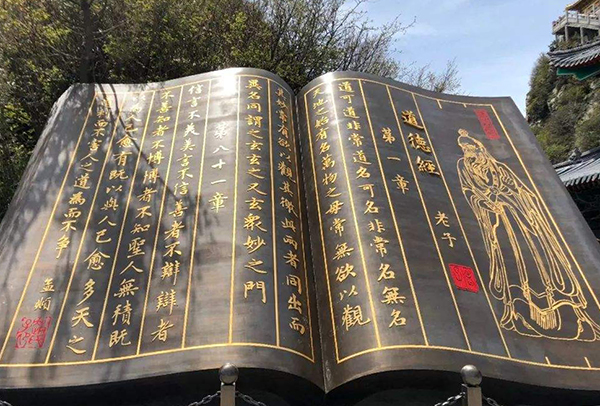 道德經
老子
第一章
道可道非常道名可名非常名無名
天地始有名萬物之母常無欲以觀
其妙常有欲以觀其徼此兩者同出而
異名同謂之玄玄之又玄衆妙之門
第八十一章
信言不美美言不信善者不辯辯者
不善知者不博博者不知聖人無積既
以為人己愈有既以與人己愈多天之
道利而不害聖人道為而不爭
孟頫